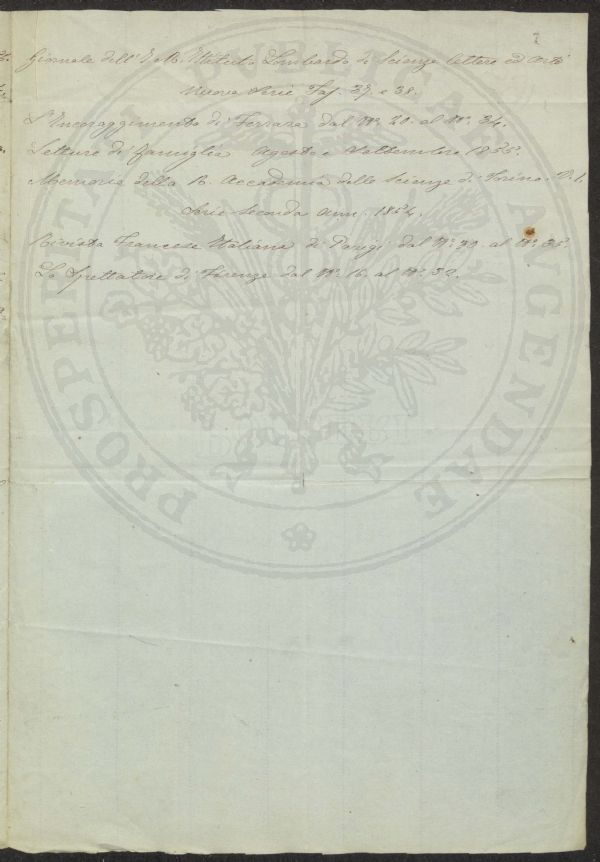 7
Giornale dell' I. e R. Istituto Lombardo di Scienze lettere ed Arti
Nuova Serie Fas. 37. e 38.
L'Incoraggimento di Ferrara dal N.º 20. al N.º 34.
Letture di Famiglia Agosto e Settembre 1855.
Memorie della R. Accademia delle Scienze di Torino. V. 1.
Serie Seconda Ann. 1854.
Rivista Francese Italiana di Parigi dal N.º al N.º
Lo Spettatore di Firenze dal N.º 16. al N.º 32.
PROSPERITATI PUBLICAE AUGENDAE